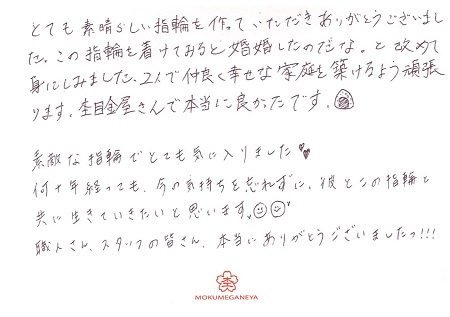 とても素晴らしい指輪を作っていただきありがとうございまし
た。この指輪を着けておると婚婚したのだな。と改めて
身にしみました。2人で仲良く幸せな家庭を築けるよう頑張
ります。杢目金屋さんで本当に良かったです。
素敵な指輪でとても気に入りました
何十年経っても、今の気持ちを忘れずに、彼とこの指輪と
共に生きていきたいと思います。
職人さん、スタッフの皆さん、本当にありがとうございましたっ!!!
杢
MOKUMEGANEYA